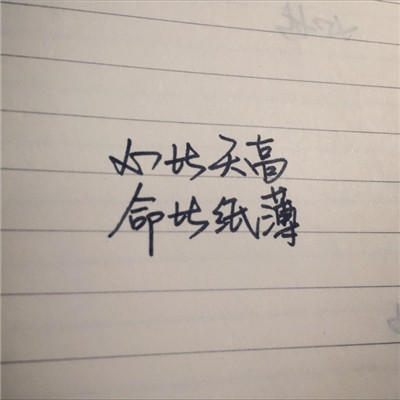 心比天高
命比纸薄